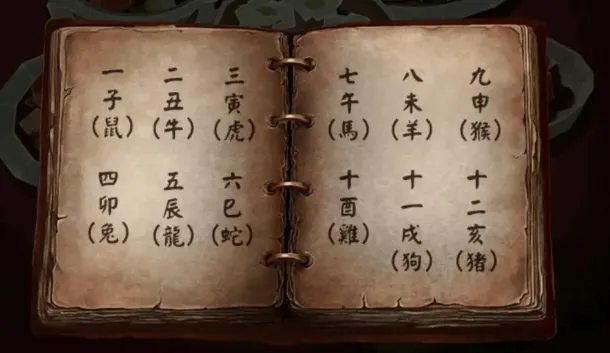 一子(鼠)
二丑(牛)
三寅(虎)
四卯(兔)
五辰(龍)
六巳(蛇)
七午(馬)
八未(羊)
九申(猴)
十酉(雞)
十一戌(狗)
十二亥(猪)